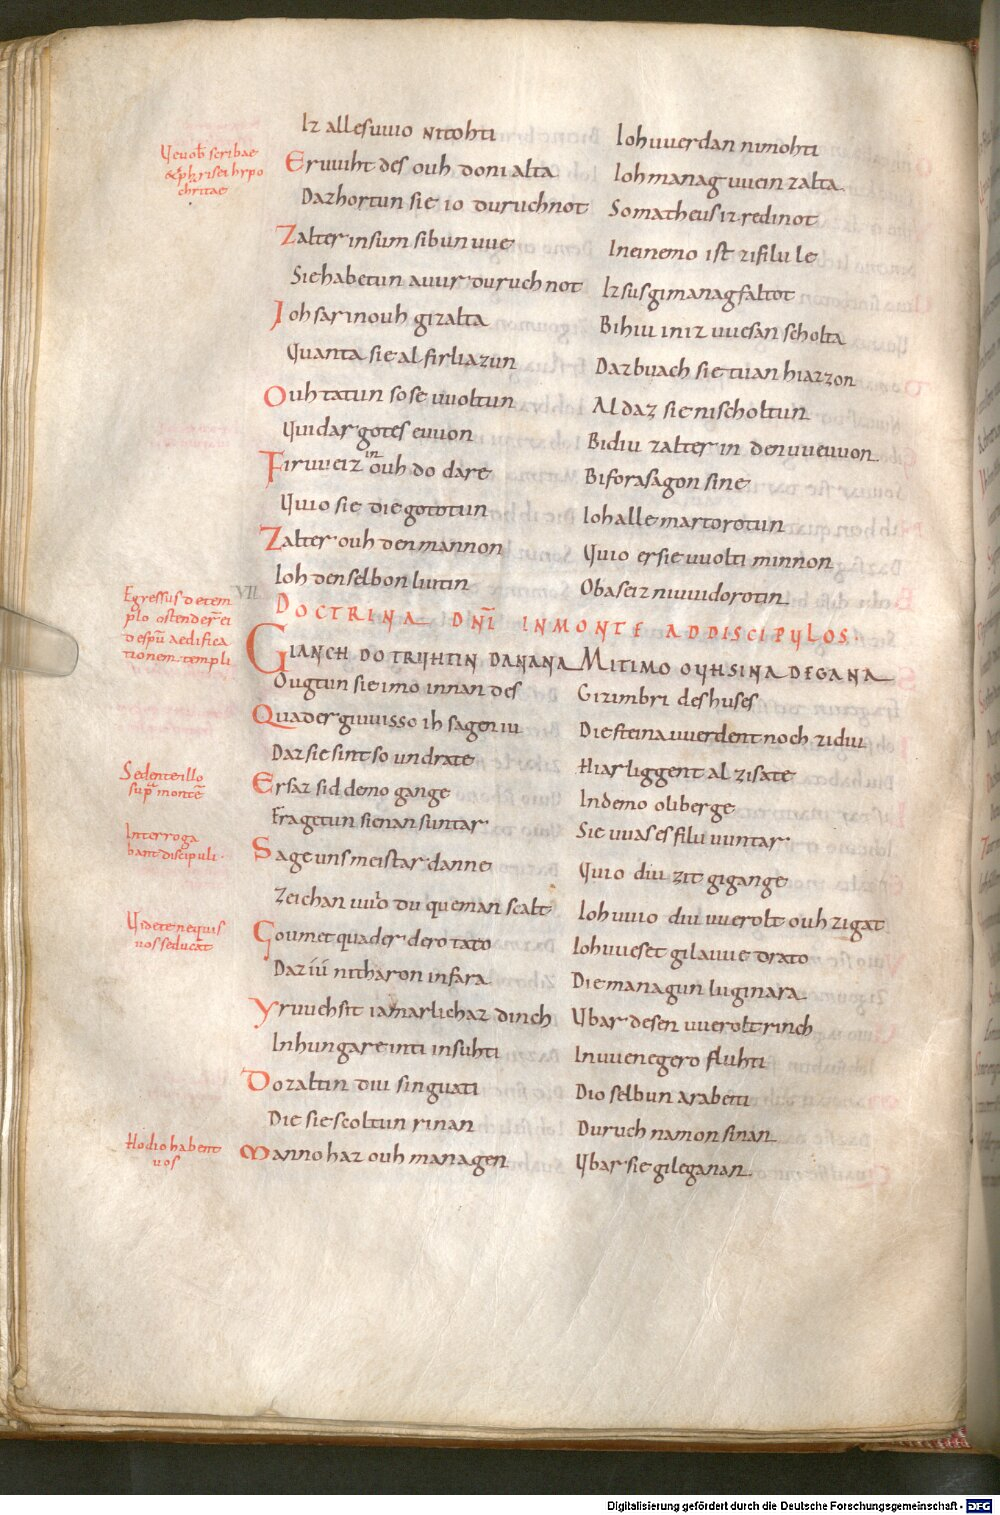 Iz alles uuio nitohti ioh uuerdan nimohti
Ueuob scribae
& pharisei hypo
chritae
Eruuiht des ouh doni alta Ioh manag uuein zalta
Daz hortun sie io duruchnot So matheus iz redinot
Zalter in sum sibun uue In einemo ist zifilu le
Sie habetun auur duruch not Iz sus gimanagfaltot
Ioh sar in ouh gizalta Bihiu in iz uuesan scholta
Uuanta sie al firliazun Daz buach sie tuan hiazzon
Ouh tatun so se uuoltun Al daz sie ni scholtun
Uuidar gotes euuon Bidiu zalter in den uueuuon
Firuueiz in ouh do dare Biforasagon sine
Uuio sie die gototun Ioh alle martorotun
Zalter ouh den mannon Uuio er sie uuolti minnon
Ioh den selbon liutin Oba se iz niuuidorotin
VII. DOCTRINA DNI IN MONTE AD DISCIPULOS.
Egressus de tem
plo ostender ei
discipuli aedifica
tionem templi
GIANCH DO TRUHTIN DANANA MIT IMO OUH SINA DEGANA
Ougtun sie imo innan des Gizimbri des huses
Quad er giuuisso ih sagen iu Die steina uuerdent noch zidiu
Daz sie sint so undrate Hiar liggent al zisate
Sedente illo
sup montem
Er saz sid demo gange In demo oliberge
Fragetun sie nan suntar Sie uuas es filu uuntar
Interroga
bant discipuli.
Sage uns meistar danne Uuio diu zit gigange
Zeichan uuio du queman scalt Ioh uuio diu uuerolt ouh zigat
Videte ne quis
uos seducat
Goumet quad er dero dato Ioh uueset gilauue drato
Daz iu nitharon in fara Die managun luginara
Yruuchsit iamarlichaz dinch Ubar desen uueroltrinch
In hungare inti in suhti In uuenegero fluhti
Do zaltin diu singuati Dio selbun arabeiti
Die sie scoltun rinan Duruch namon sinan
Hodio habent
uos
Manno haz ouh managen Ubar sie gileganan.
Digitalisierung gefördert durch die Deutsche Forschungsgemeinschaft - DFG